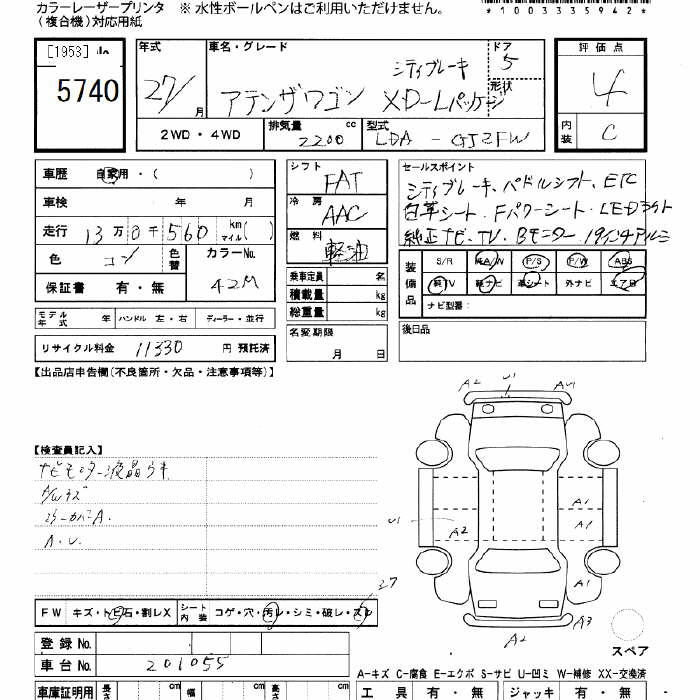 カラーレーザープリンタ ※ 水性ボールペンはご利用いただけません。
(複合機)対応用紙
*100335942*
[1953]
5740
年式 27/ 月
車名・グレード
シティブレーキ
アテンザワゴン XD-Lパッケージ
ドア 5
形状
評価点 4
内装 C
2WD・4WD
排気量 2200 cc
型式 LDA - GJ2FW
車歴 自家用・( )
車検 年 月
走行 13万0千560 km マイル( )
色 コン 色替
カラーNo. 42M
保証書 有・無
モデル年式 年 ハンドル 左・右 ディーラー・並行
リサイクル料金 11330 円 預託済
シフト FAT
冷房 AAC
燃料 軽油
乗車定員 名
積載量 kg
総重量 kg
名変期限
月 日
セールスポイント
シティブレーキ、パドルシフト、ETC
白革シート、Fパワーシート、LEDライト
純正ナビ、TV、Bモニター、19インチアルミ
装備品
S/R 純A/W P/S P/W ABS
純TV 純ナビ 革シート 外ナビ エアB
ナビ型番:
後日品
【出品店申告欄(不良箇所・欠品・注意事項等)】
【検査員記入】
ナビモニター液晶うキ
A/Wキズ
ミラーカバーA.
A.U.
A2 U1 A1
A1
U1 A2 A1
A3
A2 A3
スペア
FW キズ・トビ石・割レX シート内装 コゲ・穴・汚レ・シミ・破レ・スレ
登録 No.
車台 No. 201055
A-キズ C-腐食 E-エクボ S-サビ U-凹ミ W-補修 XX-交換済
車庫証明用 長さ cm 幅 cm 高さ cm
工具 有・無 ジャッキ 有・無